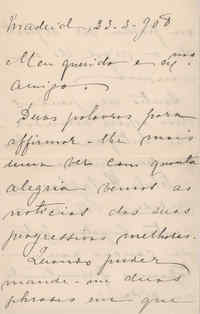 Madrid, 23-3-908
Meu querido e Exmo
Amigo.
Duas palavras para
affirmar-lhe mais
uma vez com quanta
alegria temos as
noticias das suas
progressivas melhoras.
Quando puder
mande-me duas
phrases em que